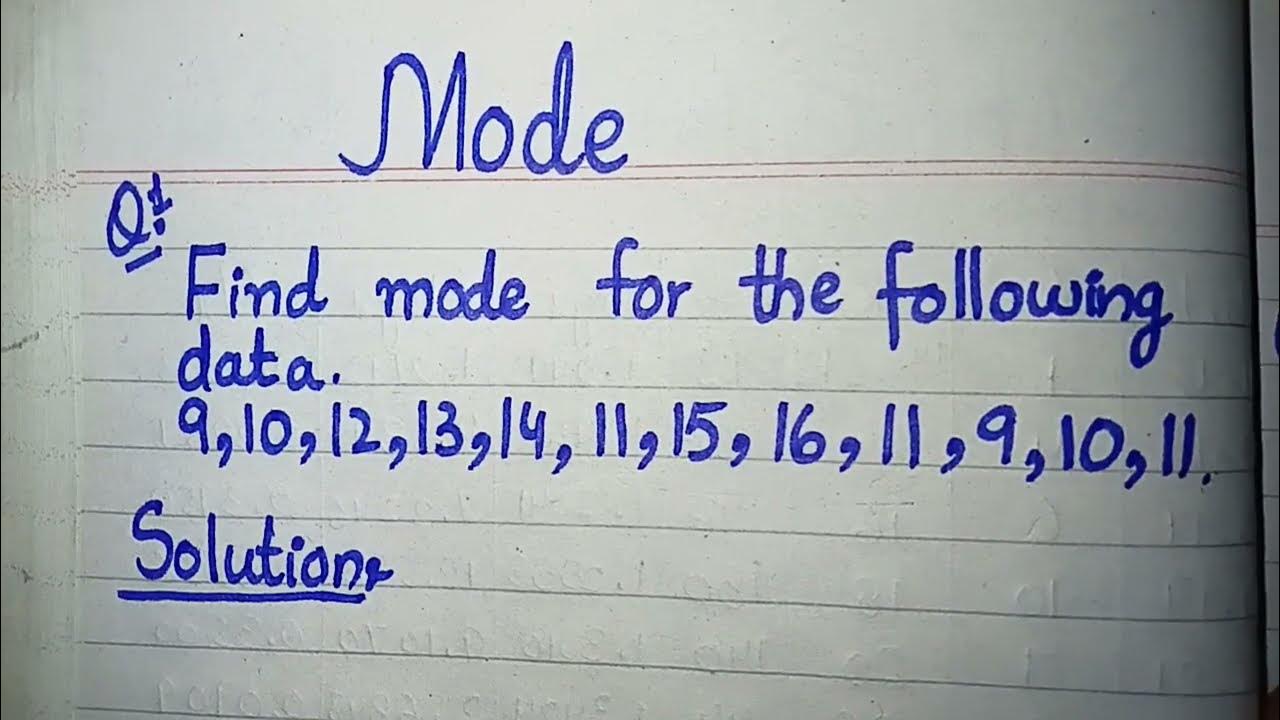 Mode
Q:1
Find mode for the following
data.
9,10,12,13,14, 11,15, 16, 11,9,10,11.
Solution: